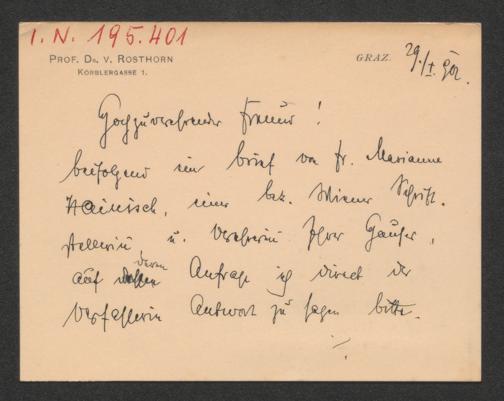 I. N. 195.401
PROF. DR. V. ROSTHORN
KÖRBLERGASSE 1.
GRAZ 29./I. 902.
Hochzuverehrender Freund!
beifolgend ein Brief von Fr. Marianne
Hainisch, einer bek. Wiener Schrift-
stellerin u. Verehrerin Ihrer
auf deren Anfrage ich direct der
Verfasserin Antwort zu sagen bitte.
./.